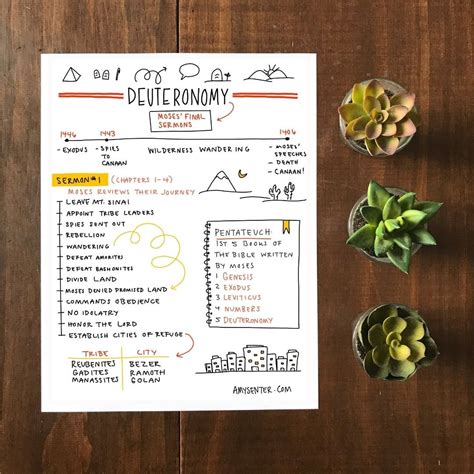 DEUTERONOMY
MOSES' FINAL
SERMONS
1446
1443
1406
- EXODUS
- SPIES
TO
CANAAN
WILDERNESS WANDERING
- MOSES'
SPEECHES
- DEATH
- CANAAN!
SERMON #1 (CHAPTERS 1-4)
MOSES REVIEWS THEIR JOURNEY
LEAVE MT. SINAI
APPOINT TRIBE LEADERS
SPIES SENT OUT
REBELLION
WANDERING
DEFEAT AMORITES
DEFEAT BASHONITES
DIVIDE LAND
MOSES DENIED PROMISED LAND
COMMANDS OBEDIENCE
NO IDOLATRY
HONOR THE LORD
ESTABLISH CITIES OF REFUGE
PENTATEUCH:
1ST 5 BOOKS OF
THE BIBLE WRITTEN
BY MOSES
1 GENESIS
2 EXODUS
3 LEVITICUS
4 NUMBERS
5 DEUTERONOMY
TRIBE CITY
REUBENITES BEZER
GADITES RAMOTH
MANASSITES GOLAN
AMYSENTER.COM